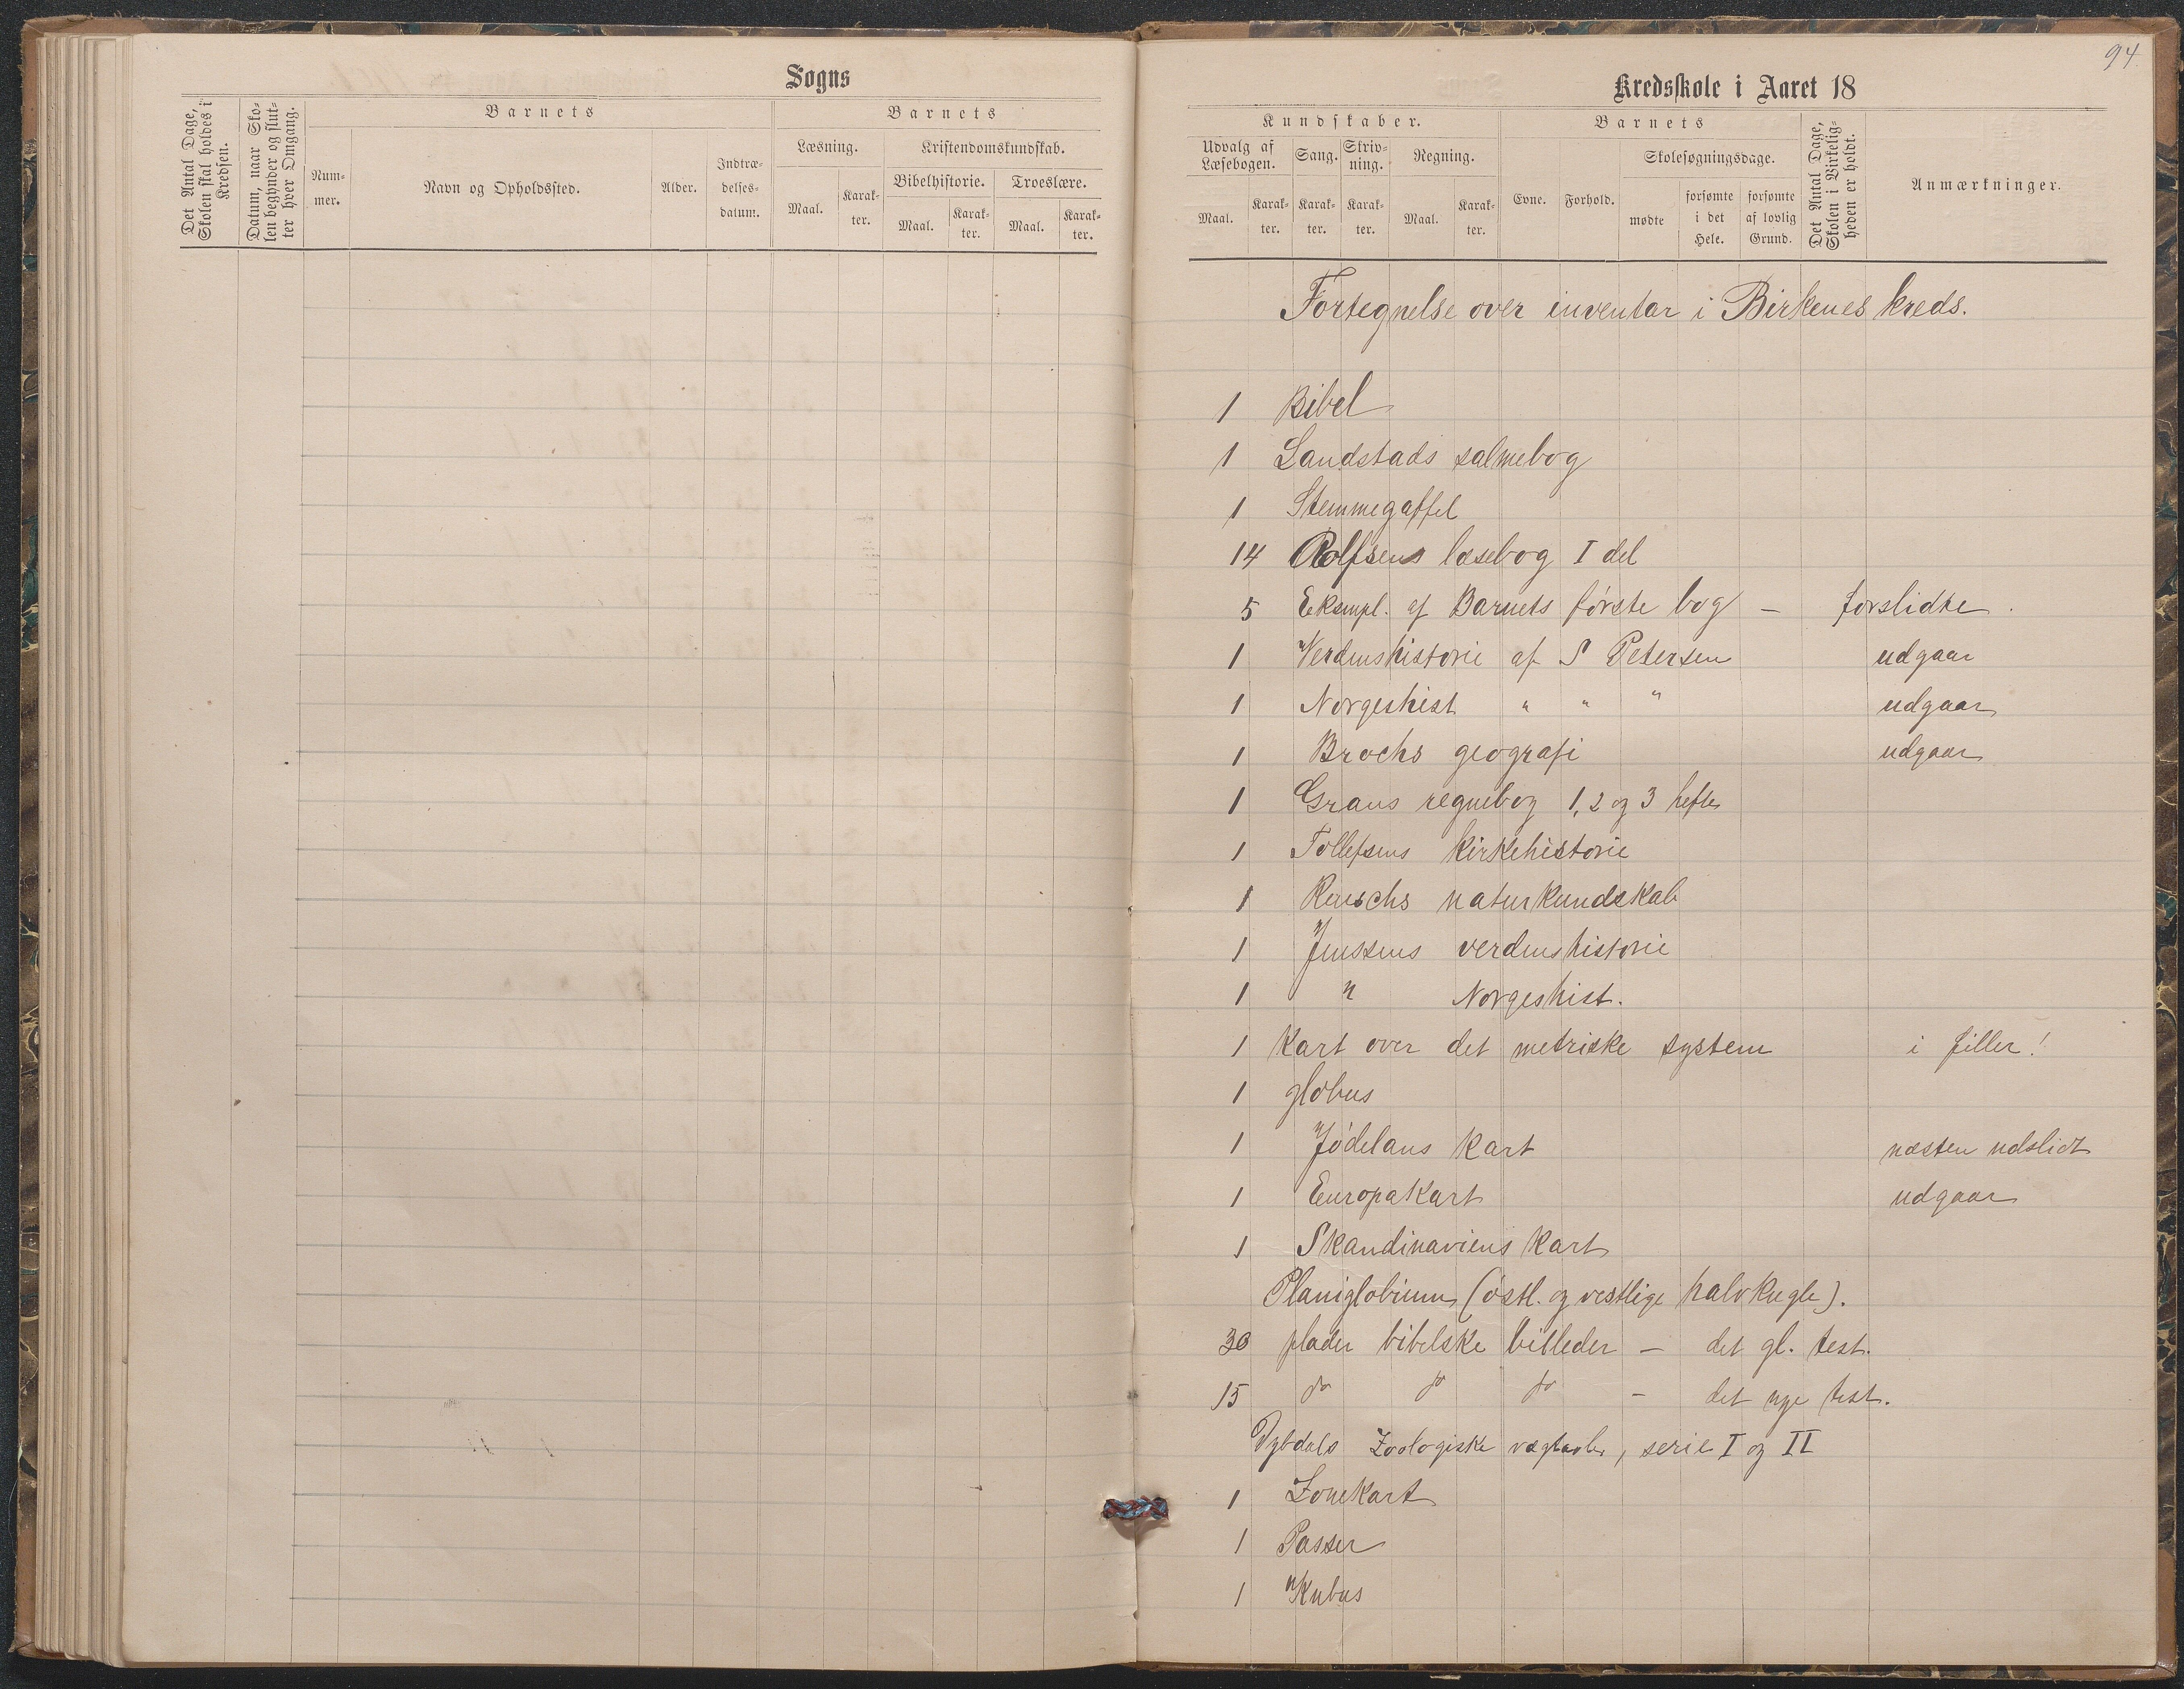 Sogns
Det Antal Dage, Skolen skal holdes i Kredsen.
Datum, naar Skolen begynder og slutter hver Omgang.
Barnets
Barnets
Nummer.
Navn og Opholdssted.
Alder.
Indtrædelsesdatum.
Læsning.
Kristendomskundskab.
Maal.
Karakter.
Bibelhistorie.
Troeslære.
Maal.
Karakter.
Maal.
Karakter.
94
Kredsskole i Aaret 18
Kundskaber.
Barnets
Udvalg af Læsebogen.
Sang.
Skrivning.
Regning.
Maal.
Karakter.
Karakter.
Karakter.
Maal.
Karakter.
Evne.
Forhold.
Skolesøgningsdage.
mødte
forsømte i det Hele.
forsømte af lovlig Grund.
Det Antal Dage, Skolen i Virkeligheden er holdt.
Anmærkninger.
Fortegnelse over inventar i Birkenes kreds.
1 Bibel
1 Landstads salmebog
1 Stemmegaffel
14 Rolfsens læsebog I del
5 Eksmpl. af Barnets første bog – forslidte.
1 Verdenshistorie af S Petersen udgaar
1 Norgeshist " " " udgaar
1 Brochs geografi udgaar
1 Graus regnebog 1, 2 og 3 hefte
1 Tollefsens kirkehistorie
1 Reuschs naturkundskab
1 Jenssens verdenshistorie
1 " Norgeshist.
1 Kart over det metriske system i filler!
1 globus
1 Jødelans kart næsten udslidt
1 Europakart udgaar
1 Skandinaviens kart
Planiglobium (østl. og vestlige halvkugle).
30 plader bibelske billeder – det gl. test.
15 do do do – det nye test.
Dybdals Zoologiske vægtavler, serie I og II
1 Zonekart
1 Passer
1 Kubus